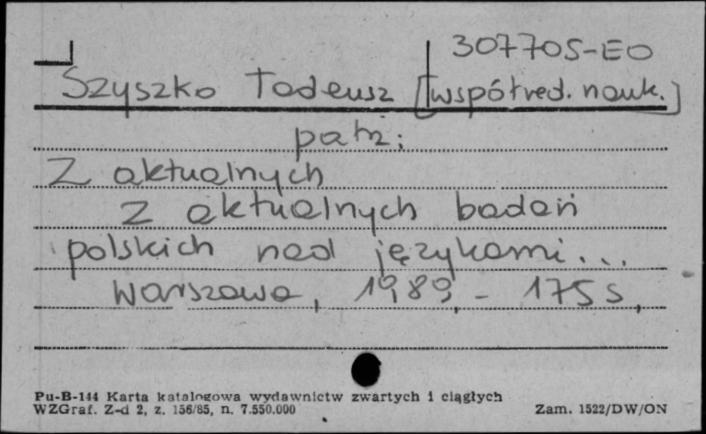 307705-EO
Szyszko Tadeusz [współred. nauk.]
patrz:
Z aktualnych
Z aktualnych badań
polskich nad językami...
Warszawa, 1989, - 175 s,
Pu-B-144 Karta katalogowa wydawnictw zwartych i ciągłych
WZGraf. Z-d 2, z. 156/85, n. 7.550.000 Zam. 1522/DW/ON